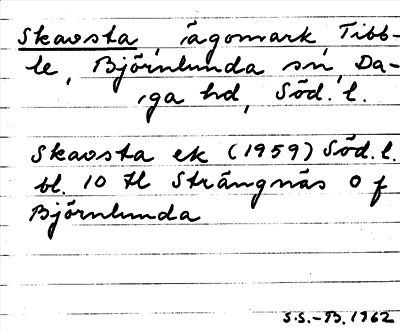 Skavsta, ägomark, Tibb-
le, Björnlunda sn, Da-
ga hd, Söd. l.
Skavsta ek (1959) Söd. l.
bl. 10 tl Strängnäs O f
Björnlunda
S.S.-B. 1962